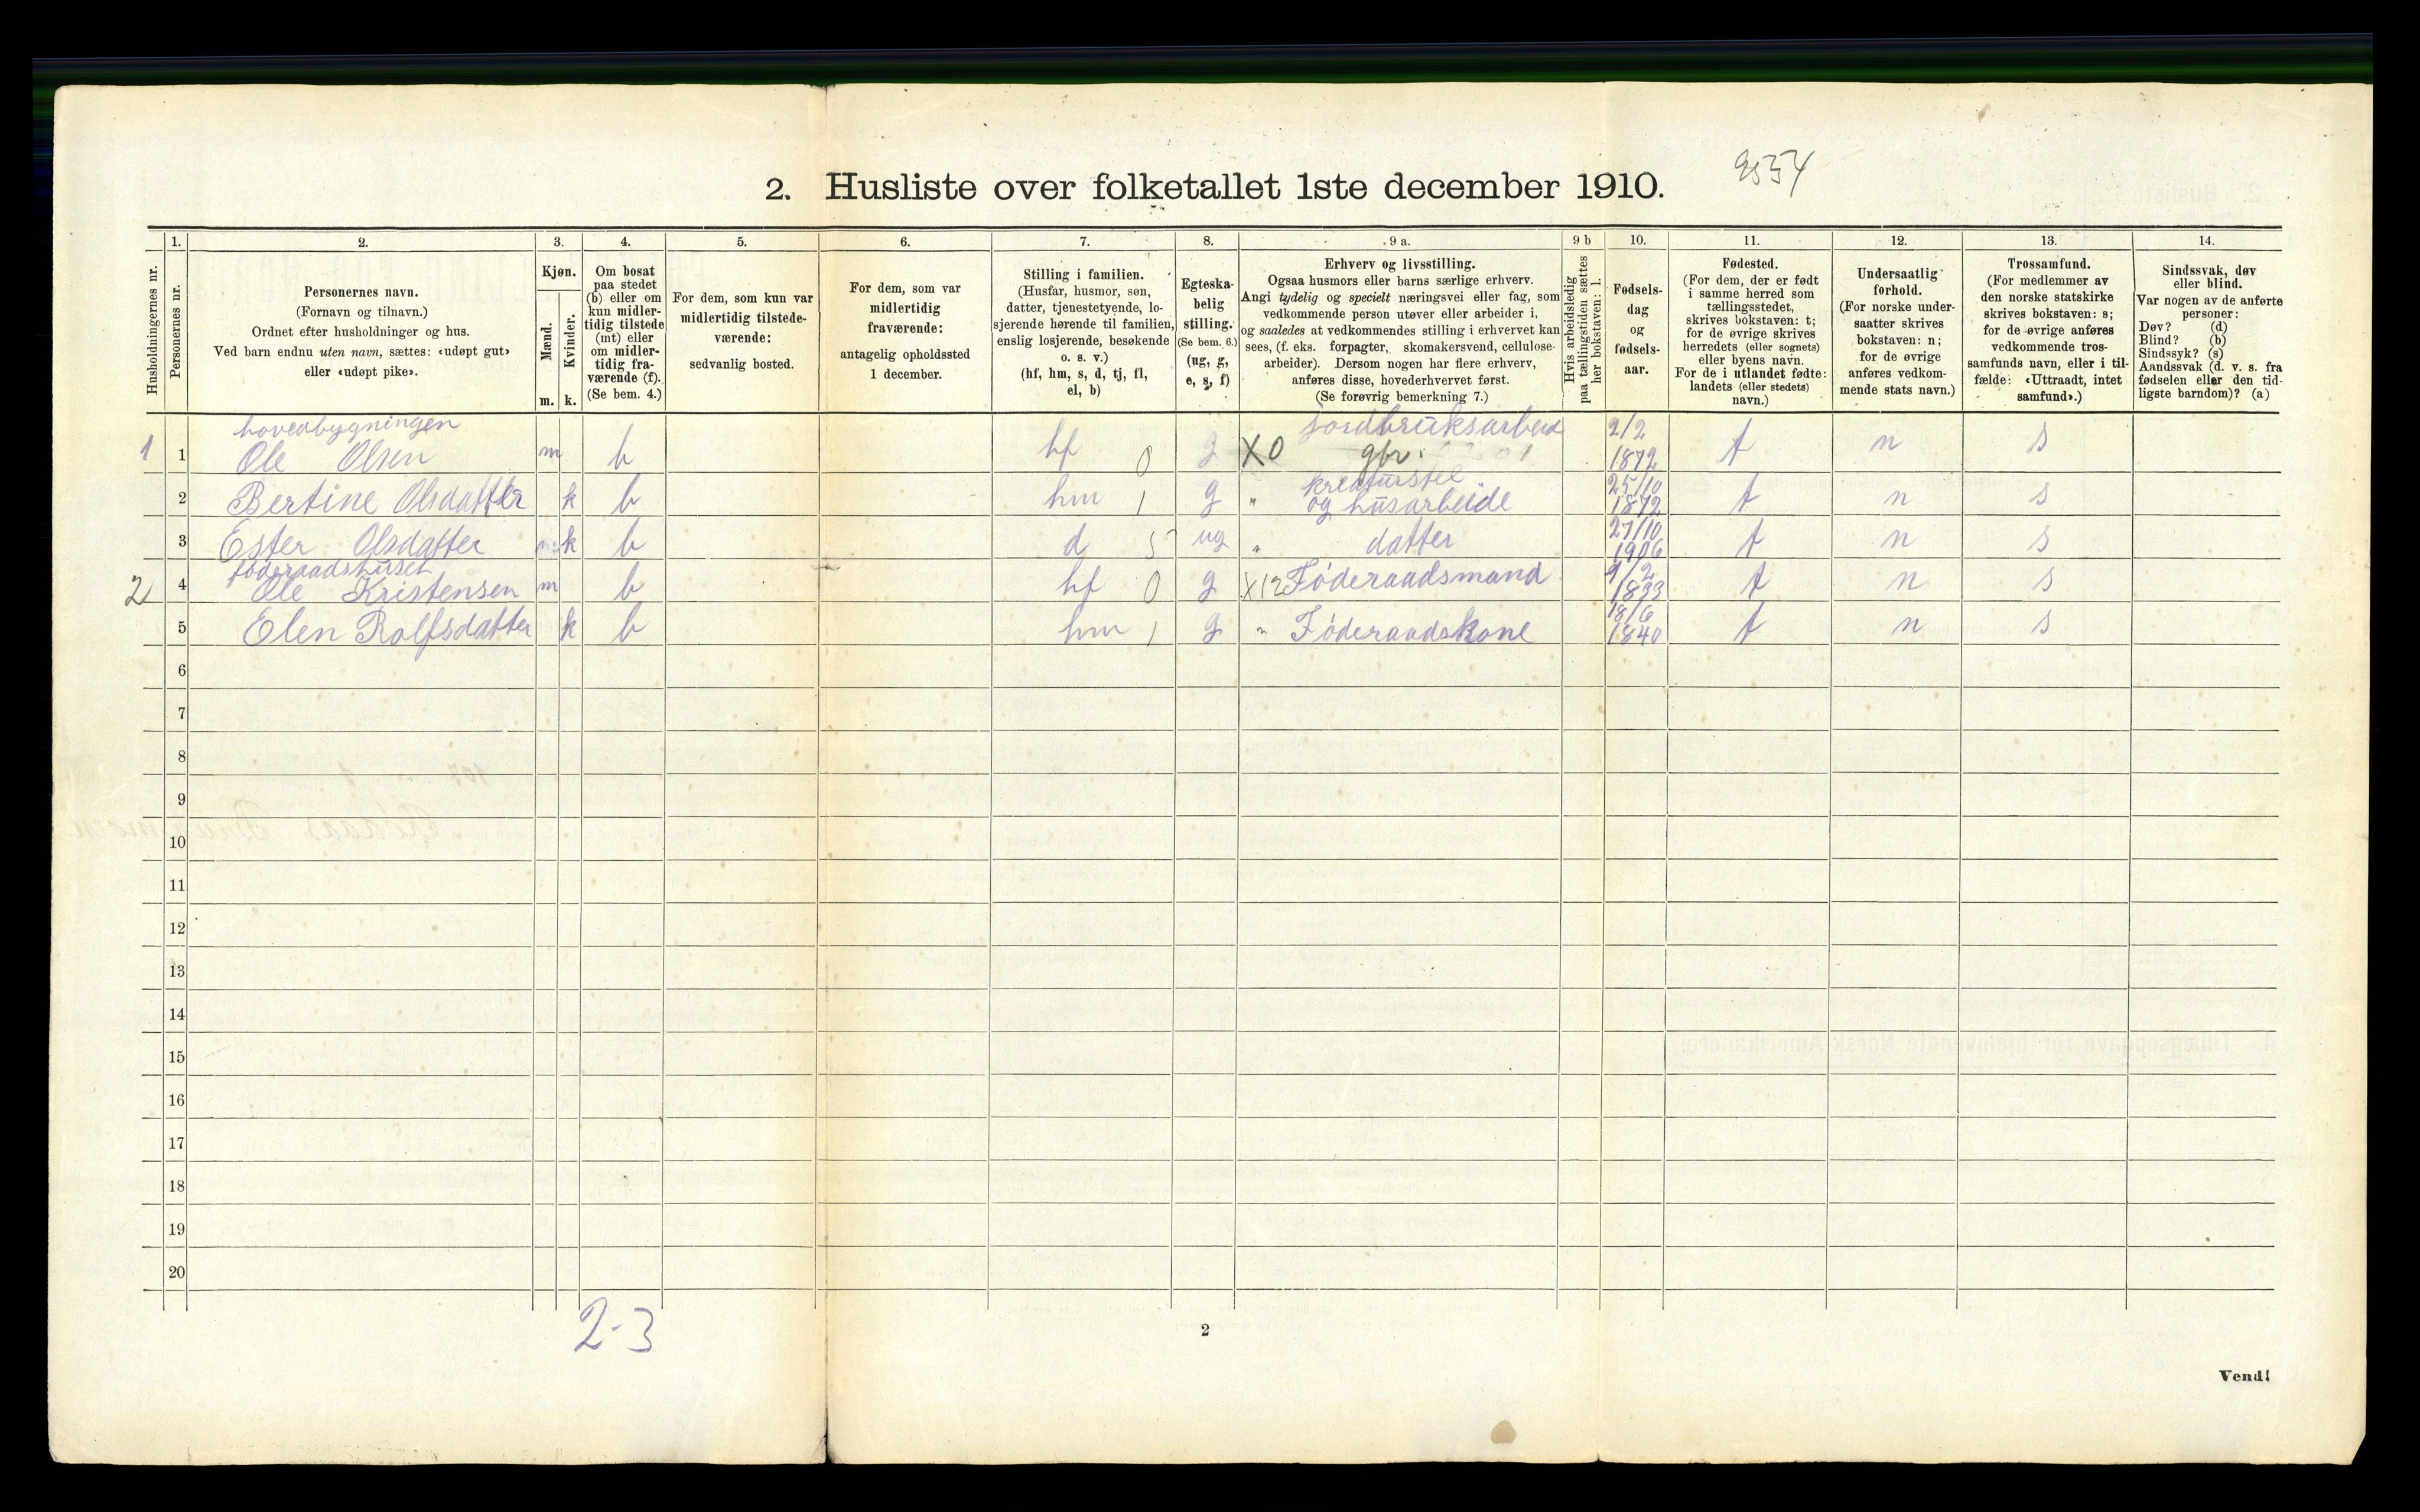 2. Husliste over folketallet 1ste december 1910.
Husholdningernes nr.
1.
Personernes nr.
2.
Personernes navn.
(Fornavn og tilnavn.)
Ordnet efter husholdninger og hus.
Ved barn endnu uten navn, sættes: «udøpt gut»
eller «udøpt pike».
3.
Kjøn.
Mænd.
Kvinder.
m. k.
4.
Om bosat
paa stedet
(b) eller om
kun midler-
tidig tilstede
(mt) eller
om midler-
tidig fra-
værende (f).
(Se bem. 4.)
5.
For dem, som kun var
midlertidig tilstede-
værende:
sedvanlig bosted.
6.
For dem, som var
midlertidig
fraværende:
antagelig opholdssted
1 december.
7.
Stilling i familien.
(Husfar, husmor, søn,
datter, tjenestetyende, lo-
sjerende hørende til familien,
enslig losjerende, besøkende
o. s. v.)
(hf, hm, s, d, tj, fl,
el, b)
8.
Egteska-
belig
stilling.
(Se bem. 6.)
(ug, g,
e, s, f)
9 a.
Erhverv og livsstilling.
Ogsaa husmors eller barns særlige erhverv.
Angi tydelig og specielt næringsvei eller fag, som
vedkommende person utøver eller arbeider i,
og saaledes at vedkommendes stilling i erhvervet kan
sees, (f. eks. forpagter, skomakersvend, cellulose-
arbeider). Dersom nogen har flere erhverv,
anføres disse, hovederhvervet først.
(Se forøvrig bemerkning 7.)
9 b
Hvis arbeidsledig
paa tællingstiden sættes
her bokstaven: l.
10.
Fødsels-
dag
og
fødsels-
aar.
11.
Fødested.
(For dem, der er født
i samme herred som
tællingsstedet,
skrives bokstaven: t;
for de øvrige skrives
herredets (eller sognets)
eller byens navn.
For de i utlandet fødte:
landets (eller stedets)
navn.)
12.
Undersaatlig
forhold.
(For norske under-
saatter skrives
bokstaven: n;
for de øvrige
anføres vedkom-
mende stats navn.)
13.
Trossamfund.
(For medlemmer av
den norske statskirke
skrives bokstaven: s;
for de øvrige anføres
vedkommende tros-
samfunds navn, eller i til-
fælde: «Uttraadt, intet
samfund».)
14.
Sindssvak, døv
eller blind.
Var nogen av de anførte
personer:
Døv? (d)
Blind? (b)
Sindssyk? (s)
Aandssvak (d. v. s. fra
fødselen eller den tid-
ligste barndom)? (a)
hovedbygningen jordbruksarbeid 2/2
1 1 Ole Olsen m b hf 0 g X0 gbr. 1872 t n s
kreaturstel 25/10
2 Bertine Olsdatter k b hm 1 g " og husarbeide 1872 t n s
27/10
3 Ester Olsdatter k b d 5 ug " datter 1906 t n s
føderaadshuset
2 4 Ole Kristensen m b hf 0 g X12 Føderaadsmand 1833 t n s
18/6
5 Elen Rolfsdatter k b hm 1 g " Føderaadskone 1840 t n s
6
7
8
9
10
11
12
13
14
15
16
17
18
19
20
2-3
2
Vend!